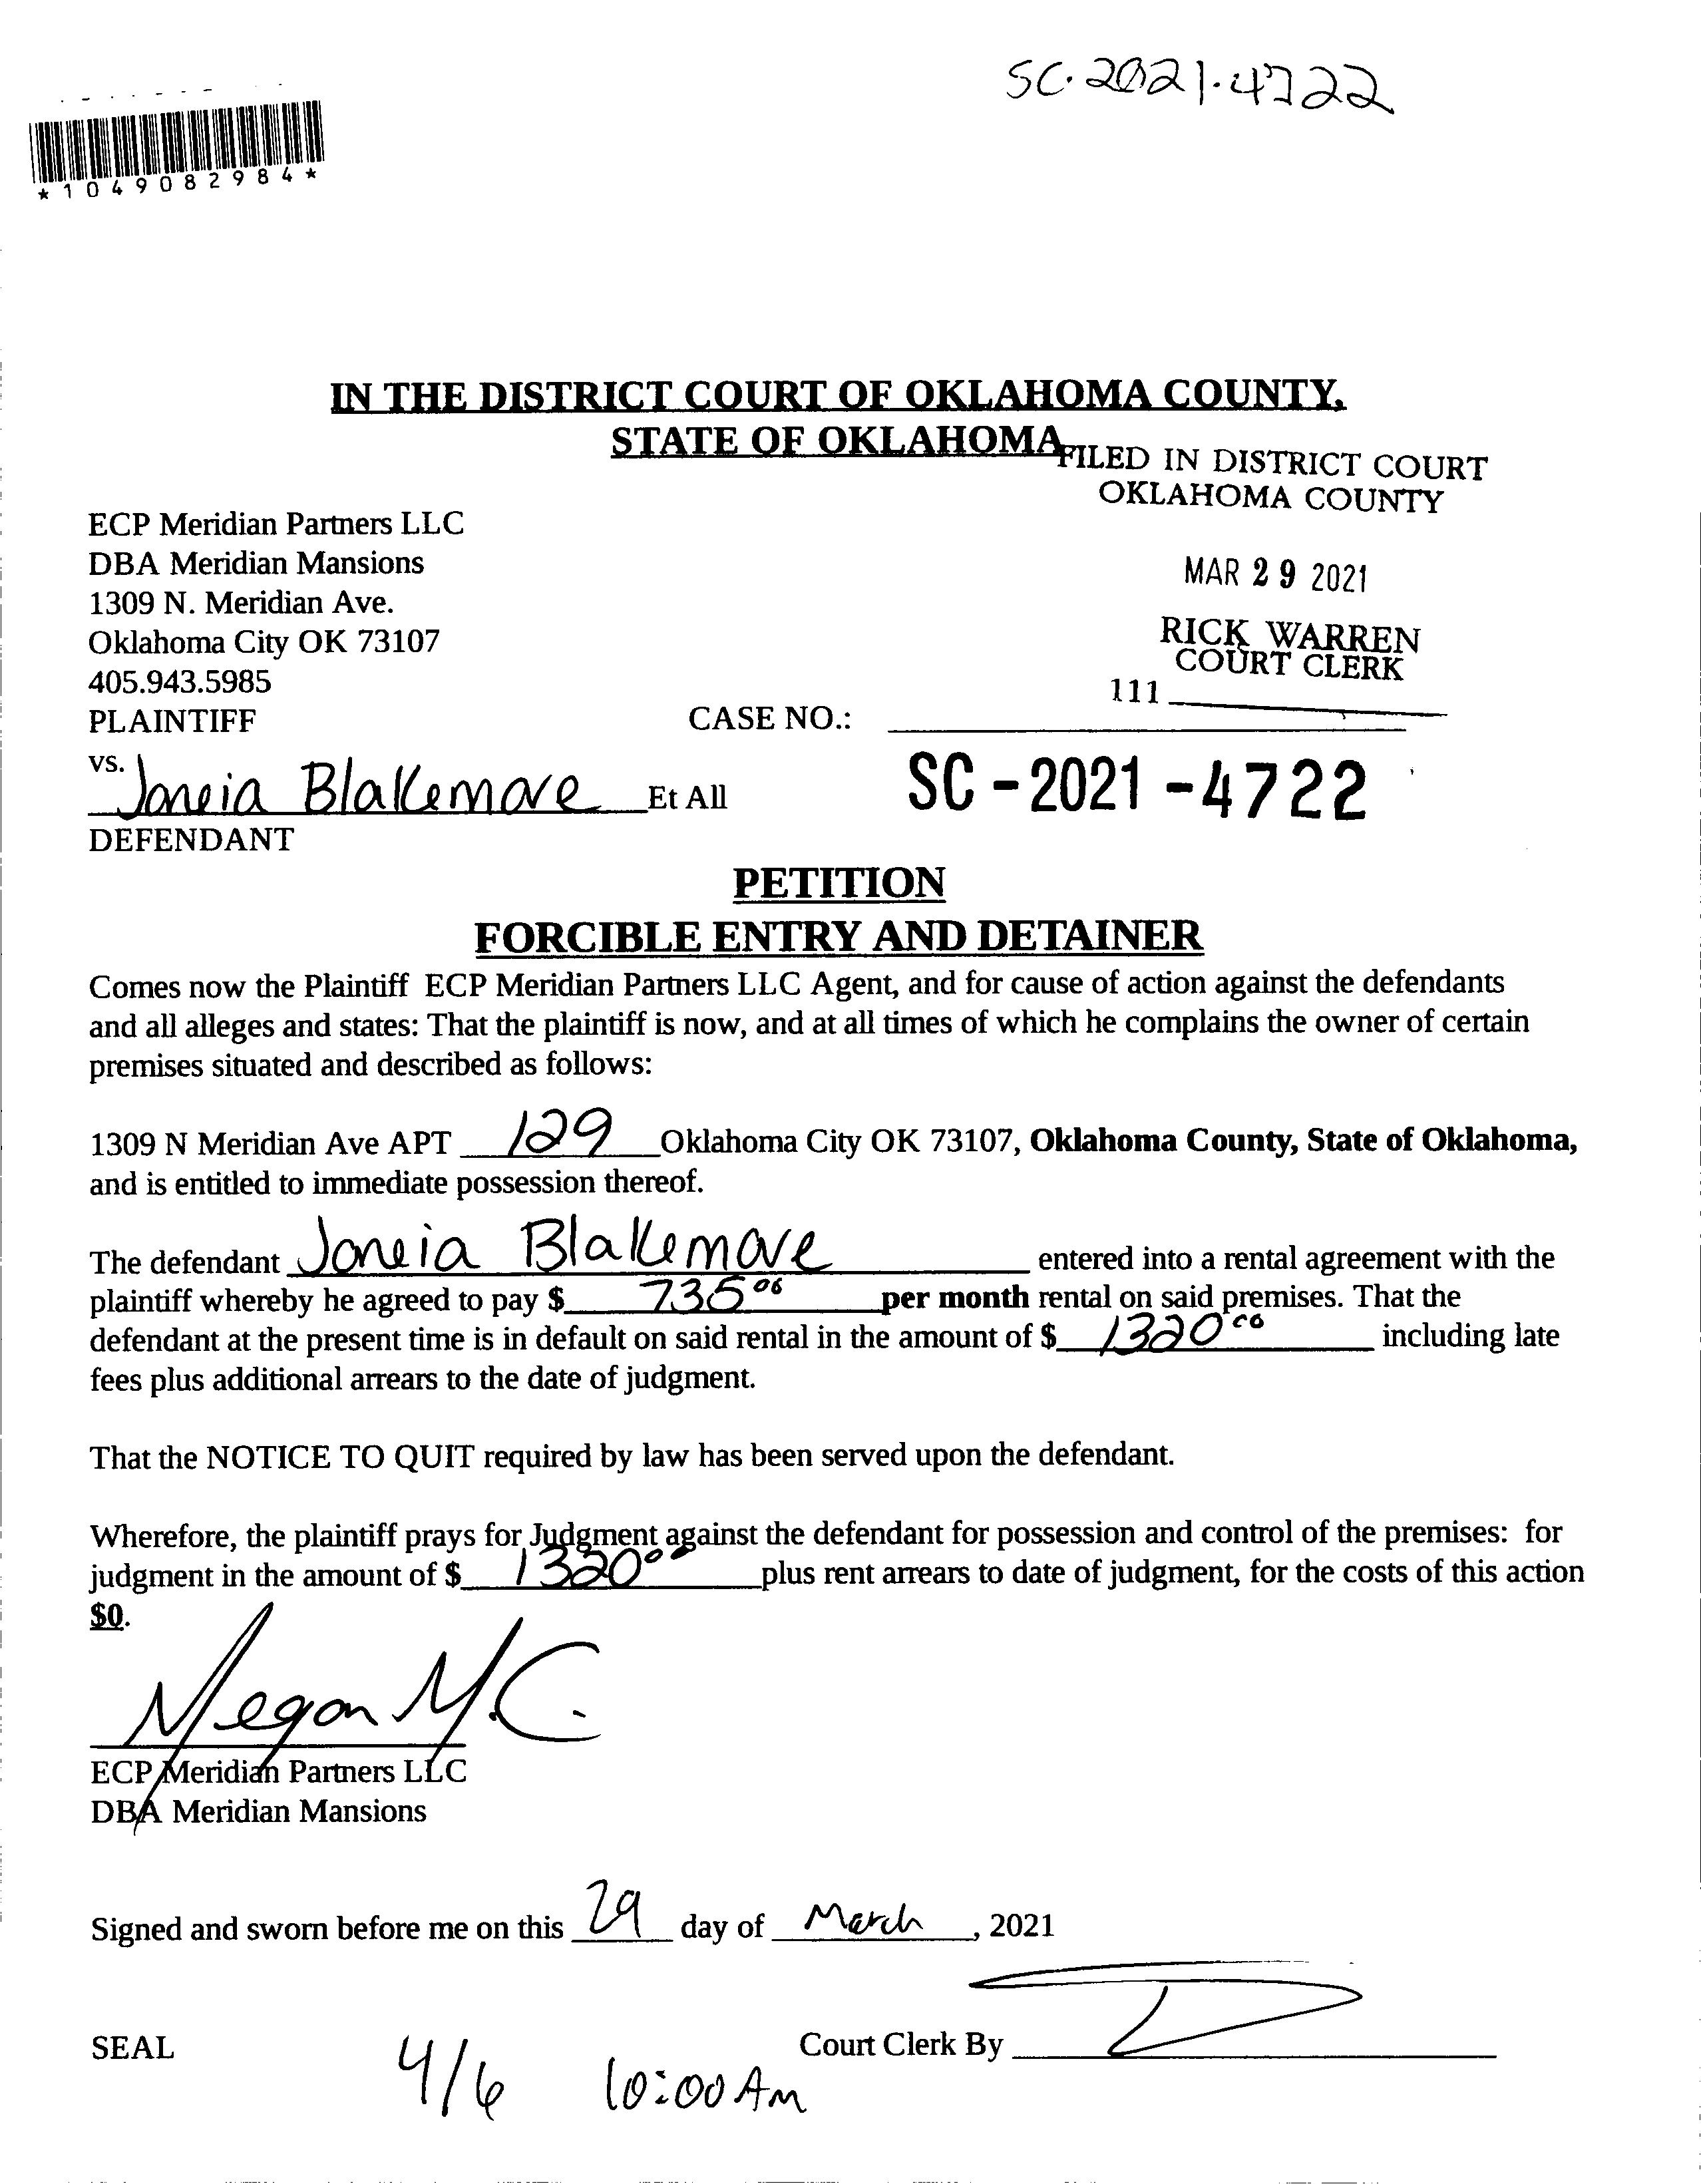 SC-2021-4722
*1049082984*
IN THE DISTRICT COURT OF OKLAHOMA COUNTY,
STATE OF OKLAHOMA
FILED IN DISTRICT COURT
OKLAHOMA COUNTY
MAR 29 2021
RICK WARREN
COURT CLERK
111
ECP Meridian Partners LLC
DBA Meridian Mansions
1309 N. Meridian Ave.
Oklahoma City OK 73107
405.943.5985
PLAINTIFF CASE NO.:
vs.
Joneia Blakemore Et All SC-2021-4722
DEFENDANT
PETITION
FORCIBLE ENTRY AND DETAINER
Comes now the Plaintiff ECP Meridian Partners LLC Agent, and for cause of action against the defendants
and all alleges and states: That the plaintiff is now, and at all times of which he complains the owner of certain
premises situated and described as follows:
1309 N Meridian Ave APT 129 Oklahoma City OK 73107, Oklahoma County, State of Oklahoma,
and is entitled to immediate possession thereof.
The defendant Joneia Blakemore entered into a rental agreement with the
plaintiff whereby he agreed to pay $ 735 00 per month rental on said premises. That the
defendant at the present time is in default on said rental in the amount of $ 1320 00 including late
fees plus additional arrears to the date of judgment.
That the NOTICE TO QUIT required by law has been served upon the defendant.
Wherefore, the plaintiff prays for Judgment against the defendant for possession and control of the premises: for
judgment in the amount of $ 1320 00 plus rent arrears to date of judgment, for the costs of this action
$0.
Megan M.C.
ECP Meridian Partners LLC
DBA Meridian Mansions
Signed and sworn before me on this 29 day of March, 2021
SEAL Court Clerk By
4/6 10:00 Am